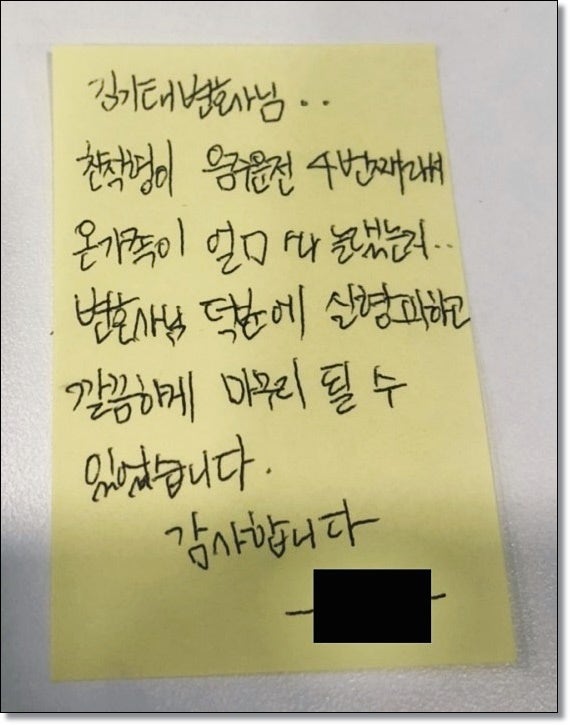 김기태변호사님..
친척형이 음주운전
온가족이 얼마나 놀랬는지..
변호사님 덕분에 실형피하고
깔끔하게 마무리 될 수
있었습니다.
감사합니다